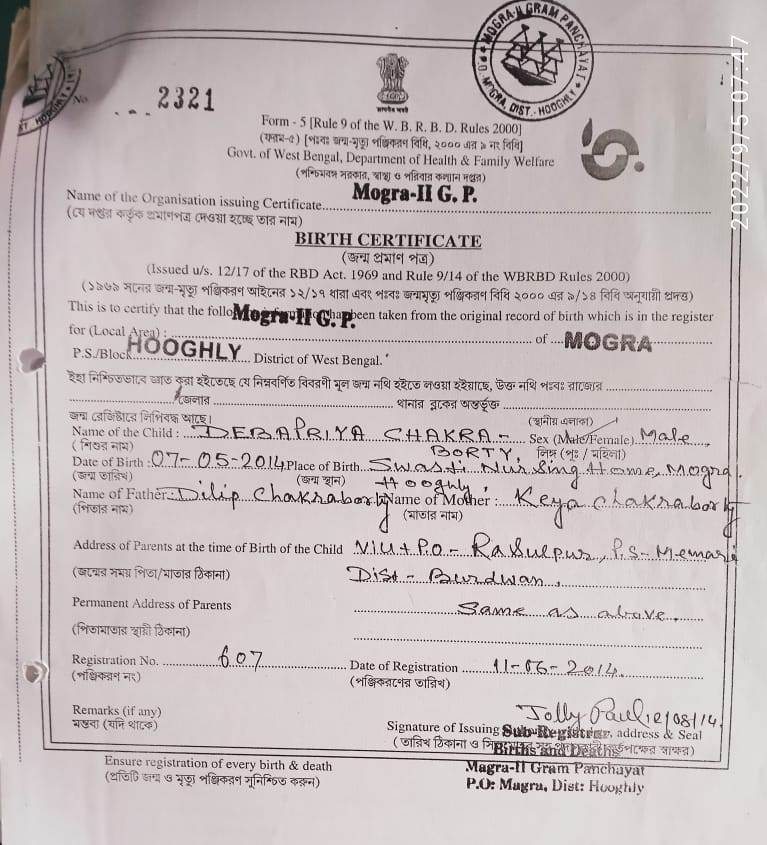 MOGRA-II GRAM PANCHAYAT
P.O.- MOGRA, DIST.- HOOGHLY
No. 2321
Form - 5 [Rule 9 of the W. B. R. B. D. Rules 2000]
(ফরম-৫) [পঃবঃ জন্ম-মৃত্যু পঞ্জিকরণ বিধি, ২০০০ এর ৯ নং বিধি]
Govt. of West Bengal, Department of Health & Family Welfare
(পশ্চিমবঙ্গ সরকার, স্বাস্থ্য ও পরিবার কল্যান দপ্তর)
Name of the Organisation issuing Certificate Mogra-II G. P.
(যে দপ্তর কর্তৃক প্রমাণপত্র দেওয়া হচ্ছে তার নাম)
BIRTH CERTIFICATE
(জন্ম প্রমাণ পত্র)
(Issued u/s. 12/17 of the RBD Act. 1969 and Rule 9/14 of the WBRBD Rules 2000)
(১৯৬৯ সনের জন্ম-মৃত্যু পঞ্জিকরণ আইনের ১২/১৭ ধারা এবং পঃবঃ জন্মমৃত্যু পঞ্জিকরণ বিধি ২০০০ এর ৯/১৪ বিধি অনুযায়ী প্রদত্ত)
This is to certify that the follo Mogra-II G. P. been taken from the original record of birth which is in the register
for (Local Area) : of MOGRA
P.S./Block HOOGHLY District of West Bengal.
ইহা নিশ্চিতভাবে জ্ঞাত করা হইতেছে যে নিম্নবর্ণিত বিবরণী মূল জন্ম নথি হইতে লওয়া হইয়াছে, উক্ত নথি পঃবঃ রাজ্যের
জেলার থানার ব্লকের অন্তর্ভূক্ত
জন্ম রেজিষ্টারে লিপিবদ্ধ আছে। (স্থানীয় এলাকা)
Name of the Child : DEBAPRIYA CHAKRA- Sex (Male/Female) Male
(শিশুর নাম) BORTY, লিঙ্গ (পুঃ / মহিলা)
Date of Birth : 07-05-2014 Place of Birth Swasti Nursing Home, Mogra.
(জন্ম তারিখ) (জন্ম স্থান) Hooghly,
Name of Father: Dilip Chakraborty Name of Mother : Keya Chakraborty
(পিতার নাম) (মাতার নাম)
Address of Parents at the time of Birth of the Child Vill + P.O - Rasulpur, P.S - Memari
(জন্মের সময় পিতা/মাতার ঠিকানা) Dist - Burdwan.
Permanent Address of Parents Same as above.
(পিতামাতার স্থায়ী ঠিকানা)
Registration No. 607 Date of Registration 11-06-2014
(পঞ্জিকরণ নং) (পঞ্জিকরণের তারিখ)
Remarks (if any) Jolly Paul 12/08/14
মন্তব্য (যদি থাকে) Signature of Issuing Sub-Registrar, address & Seal
(তারিখ ঠিকানা ও Births and Deaths কর্তৃপক্ষের স্বাক্ষর)
Ensure registration of every birth & death Magra-II Gram Panchayat
(প্রতিটি জন্ম ও মৃত্যু পঞ্জিকরণ সুনিশ্চিত করুন) P.O: Magra, Dist: Hooghly
2022/9/5 07:47